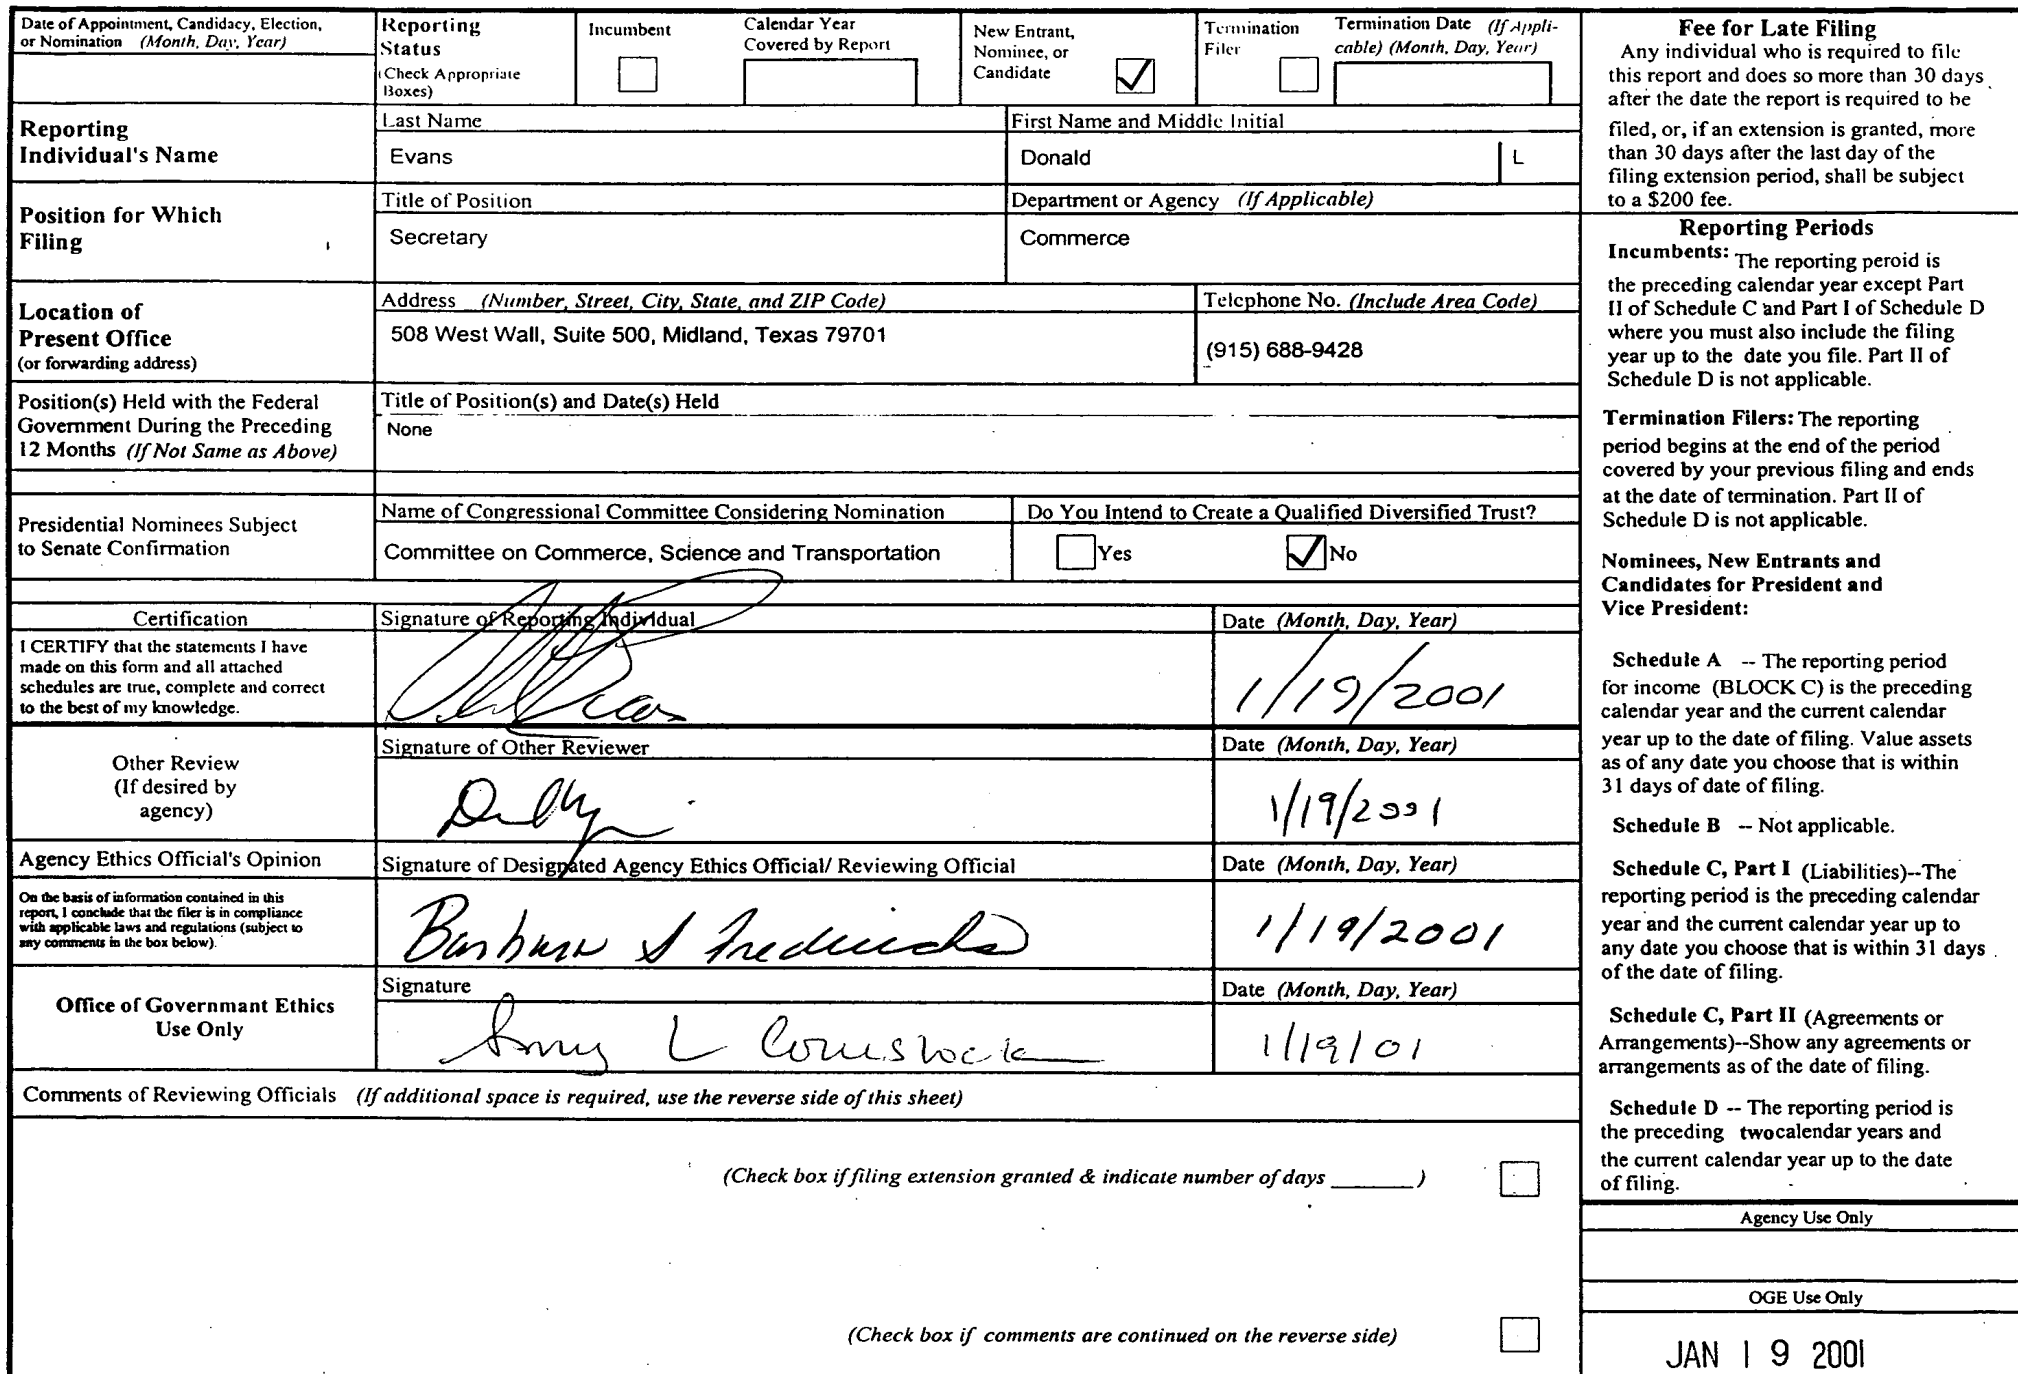 Date of Appointment, Candidacy, Election,
or Nomination (Month, Day, Year)
Reporting
Status
(Check Appropriate
Boxes)
Incumbent
Calendar Year
Covered by Report
New Entrant,
Nominee, or
Candidate
Termination
Filer
Termination Date (If Appli-
cable) (Month, Day, Year)
Reporting
Individual's Name
Last Name
Evans
First Name and Middle Initial
Donald L
Position for Which
Filing
Title of Position
Secretary
Department or Agency (If Applicable)
Commerce
Location of
Present Office
(or forwarding address)
Address (Number, Street, City, State, and ZIP Code)
508 West Wall, Suite 500, Midland, Texas 79701
Telephone No. (Include Area Code)
(915) 688-9428
Position(s) Held with the Federal
Government During the Preceding
12 Months (If Not Same as Above)
Title of Position(s) and Date(s) Held
None
Presidential Nominees Subject
to Senate Confirmation
Name of Congressional Committee Considering Nomination
Committee on Commerce, Science and Transportation
Do You Intend to Create a Qualified Diversified Trust?
Yes No
Certification
I CERTIFY that the statements I have
made on this form and all attached
schedules are true, complete and correct
to the best of my knowledge.
Signature of Reporting Individual
Date (Month, Day, Year)
1/19/2001
Other Review
(If desired by
agency)
Signature of Other Reviewer
Date (Month, Day, Year)
1/19/2001
Agency Ethics Official's Opinion
On the basis of information contained in this
report, I conclude that the filer is in compliance
with applicable laws and regulations (subject to
any comments in the box below).
Signature of Designated Agency Ethics Official/ Reviewing Official
Barbara S Fredericks
Date (Month, Day, Year)
1/19/2001
Office of Governmant Ethics
Use Only
Signature
Amy L Comstock
Date (Month, Day, Year)
1/19/01
Comments of Reviewing Officials (If additional space is required, use the reverse side of this sheet)
(Check box if filing extension granted & indicate number of days ______ )
(Check box if comments are continued on the reverse side)
Fee for Late Filing
Any individual who is required to file
this report and does so more than 30 days
after the date the report is required to be
filed, or, if an extension is granted, more
than 30 days after the last day of the
filing extension period, shall be subject
to a $200 fee.
Reporting Periods
Incumbents: The reporting peroid is
the preceding calendar year except Part
II of Schedule C and Part I of Schedule D
where you must also include the filing
year up to the date you file. Part II of
Schedule D is not applicable.
Termination Filers: The reporting
period begins at the end of the period
covered by your previous filing and ends
at the date of termination. Part II of
Schedule D is not applicable.
Nominees, New Entrants and
Candidates for President and
Vice President:
Schedule A -- The reporting period
for income (BLOCK C) is the preceding
calendar year and the current calendar
year up to the date of filing. Value assets
as of any date you choose that is within
31 days of date of filing.
Schedule B -- Not applicable.
Schedule C, Part I (Liabilities)--The
reporting period is the preceding calendar
year and the current calendar year up to
any date you choose that is within 31 days
of the date of filing.
Schedule C, Part II (Agreements or
Arrangements)--Show any agreements or
arrangements as of the date of filing.
Schedule D -- The reporting period is
the preceding twocalendar years and
the current calendar year up to the date
of filing.
Agency Use Only
OGE Use Only
JAN 19 2001